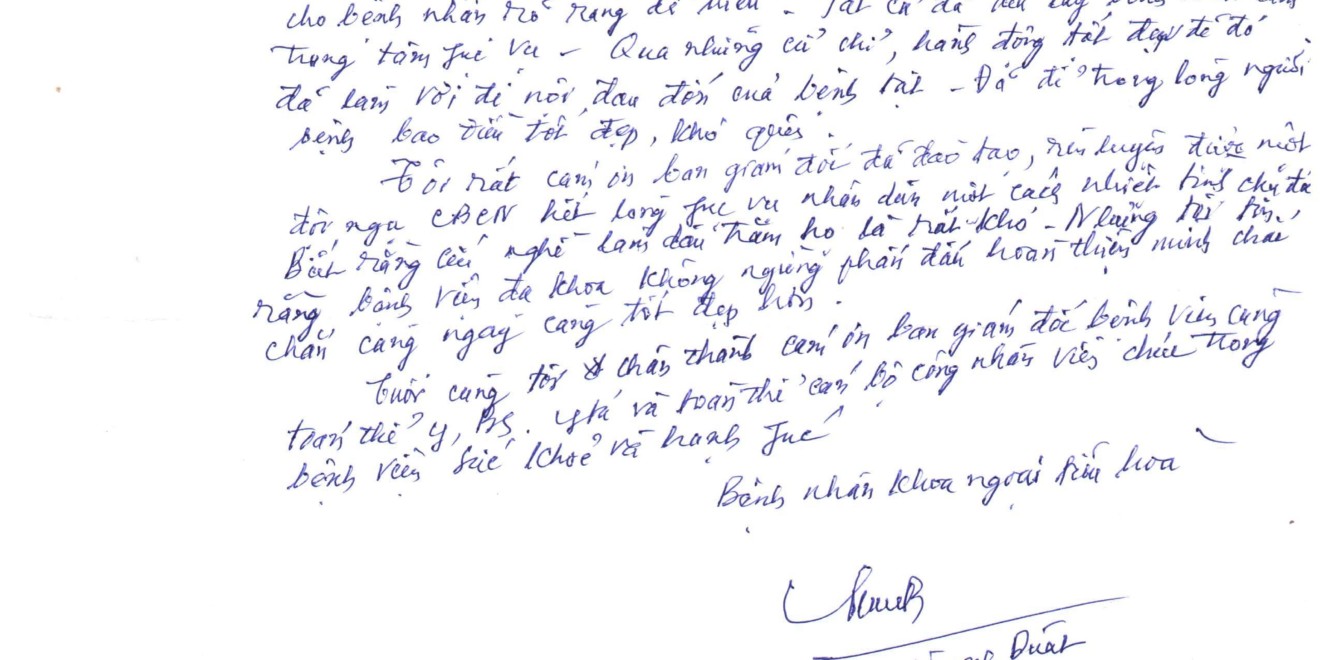 cho bệnh nhân rõ ràng dễ hiểu - Tất cả đã
trung tâm fục vụ - Qua những cử chỉ, hành động tốt đẹp để đó
đã làm vơi đi nỗi đau đớn của bệnh tật - Đã để trong lòng người
bệnh bao điều tốt đẹp, khó quên.
Tôi rất cám ơn ban giám đốc đã đào tạo, rèn luyện được một
đội ngũ CBCN hết lòng fục vụ nhân dân một cách nhiệt tình chu đáo
Biết rằng cái nghề làm dâu trăm họ là rất khó - Nhưng tôi tin
rằng bệnh viện đa khoa không ngừng phấn đấu hoàn thiện mình chắc
chắn càng ngày càng tốt đẹp hơn.
Cuối cùng tôi chân thành cám ơn ban giám đốc bệnh viện cùng
toàn thể y, BS. y tá và toàn thể cán bộ công nhân viên chức trong
bệnh viện sức khoẻ và hạnh fúc
Bệnh nhân khoa ngoại tiêu hoá
Duất